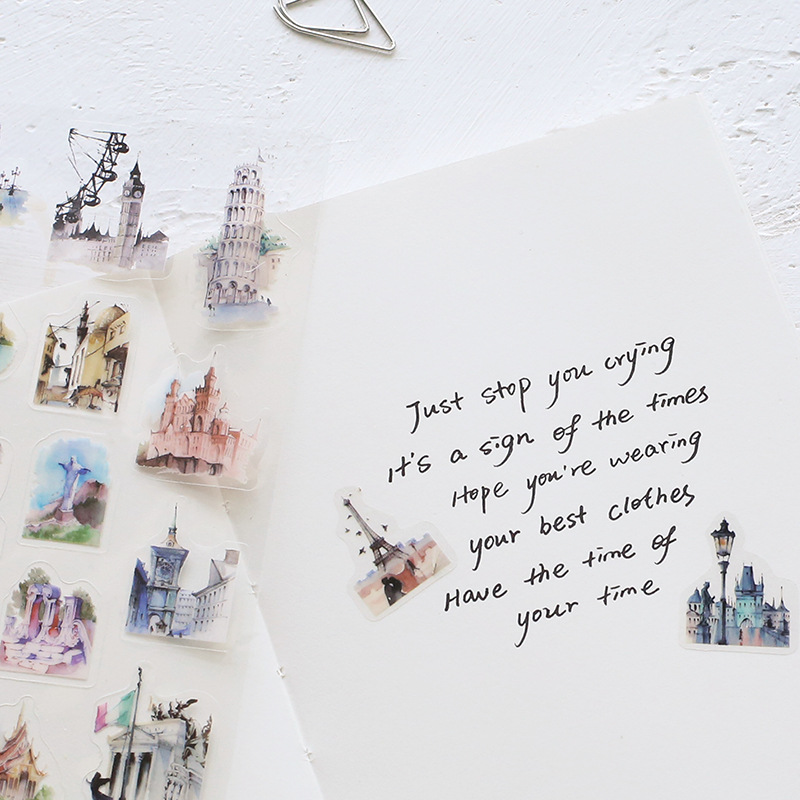 Just stop you crying
It's a sign of the times
Hope you're wearing
your best clothes
Have the time of
your time